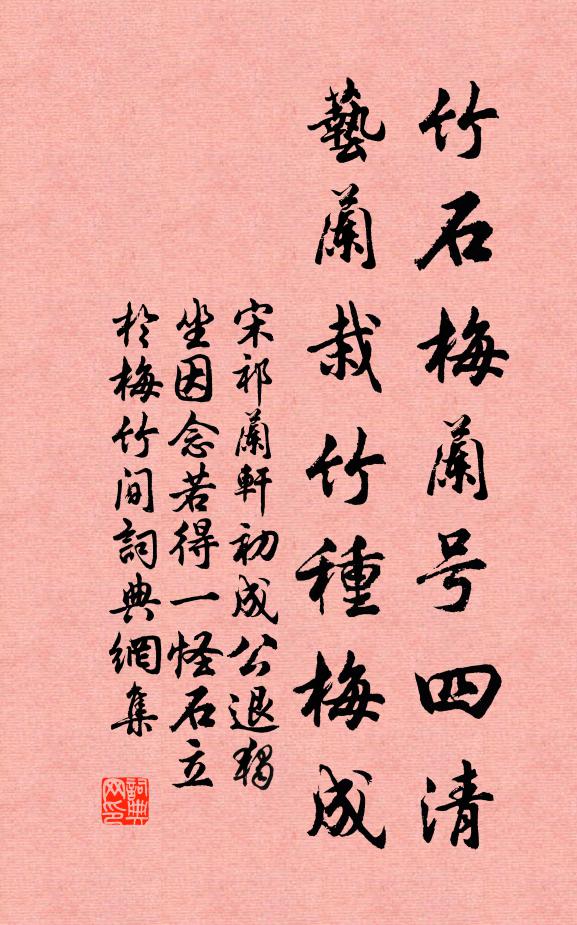 竹石梅蘭号四清
藝蘭栽竹種梅成
宋祁蘭軒初成公退獨
坐因念若得一怪石立
於梅竹间詞典網集
詞典
网印